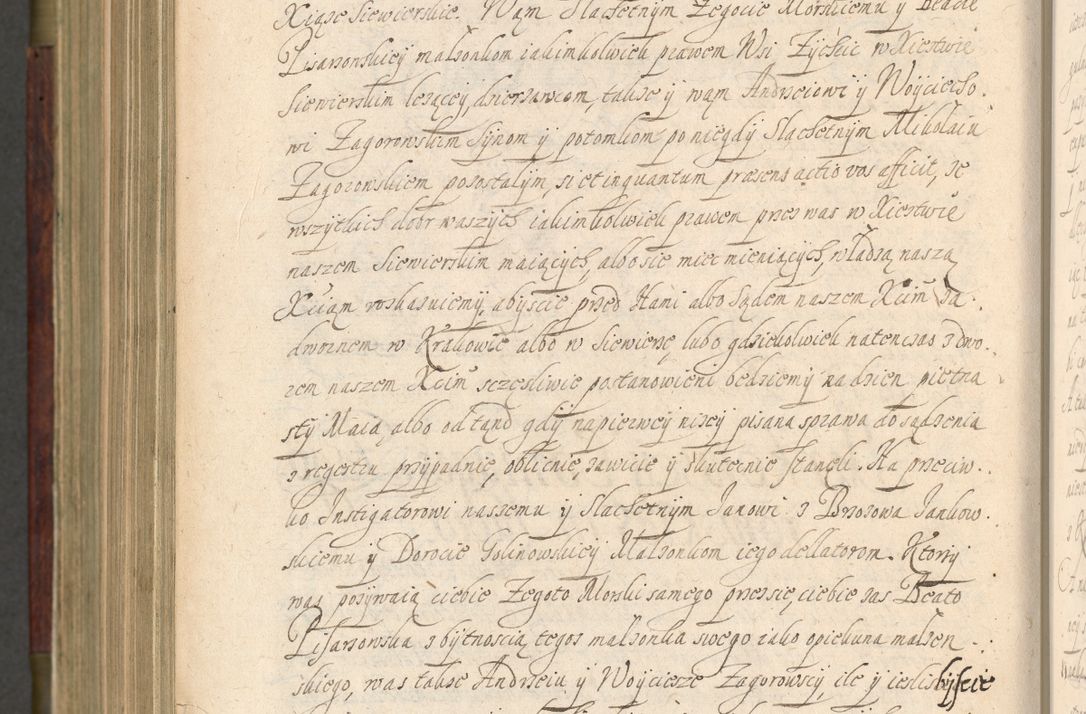 Xiąże Siewierskie. Wąm Slachetnÿm Zegocie Morskiemu ÿ Beacie
Pisarzowskieÿ małzonkom iakimkolwiek prawem Wsi Zÿchcic w Xiestwie
Siewierskim lezącey dzierzawcom, takze ÿ wąm Andrzeiowi ÿ Woÿciecho.
wi Zagorowskim Sÿnom ÿ potomkom po niegdÿ Slachetnÿm Mikolaiu
Zagorowskiem pozostałÿm, si et inquantum præsens actio vos afficit, ze
wszÿtkich dobr waszÿch iakimkolwiek prawem przez was w Xiestwie
naszem Siewierskim maiącÿch, albo sie miec mieniącÿch, władzą naszą
Xciąm roskazuiemÿ, abÿscie przed Nami albo Sądem naszem Xcim za.
dwornem w Krakowie albo w Siewierzu, lubo gdziekolwiek natenczas z dwo.
rem naszem Xcim sczęsliwie postanowieni będziemÿ na dzien pietna
stÿ Maia, albo odtąnd gdÿ napierweÿ nizeÿ pisana sprawa do sądzenia
z regestru przÿpadnie, oblicnie, zawicie ÿ skutecnie stanęli. Na przeciw.
ko Instigatorowi naszemu ÿ Slachetnÿm Janowi z Brzozowa Jankow.
skiemu ÿ Dorocie Golinowskieÿ Małzonkom iego dellatorom. Ktorzÿ
was pozÿwaią ciebie Zegoto Morski samego przez sie, ciebie zas Beato
Pisarzowska z bÿtnoscią tegoz małzonka swego iako opiekuna małzen.
skiego, was takze Andrzeiu ÿ Woÿciesze Zagorowscÿ, ile ÿ ieslibÿscie